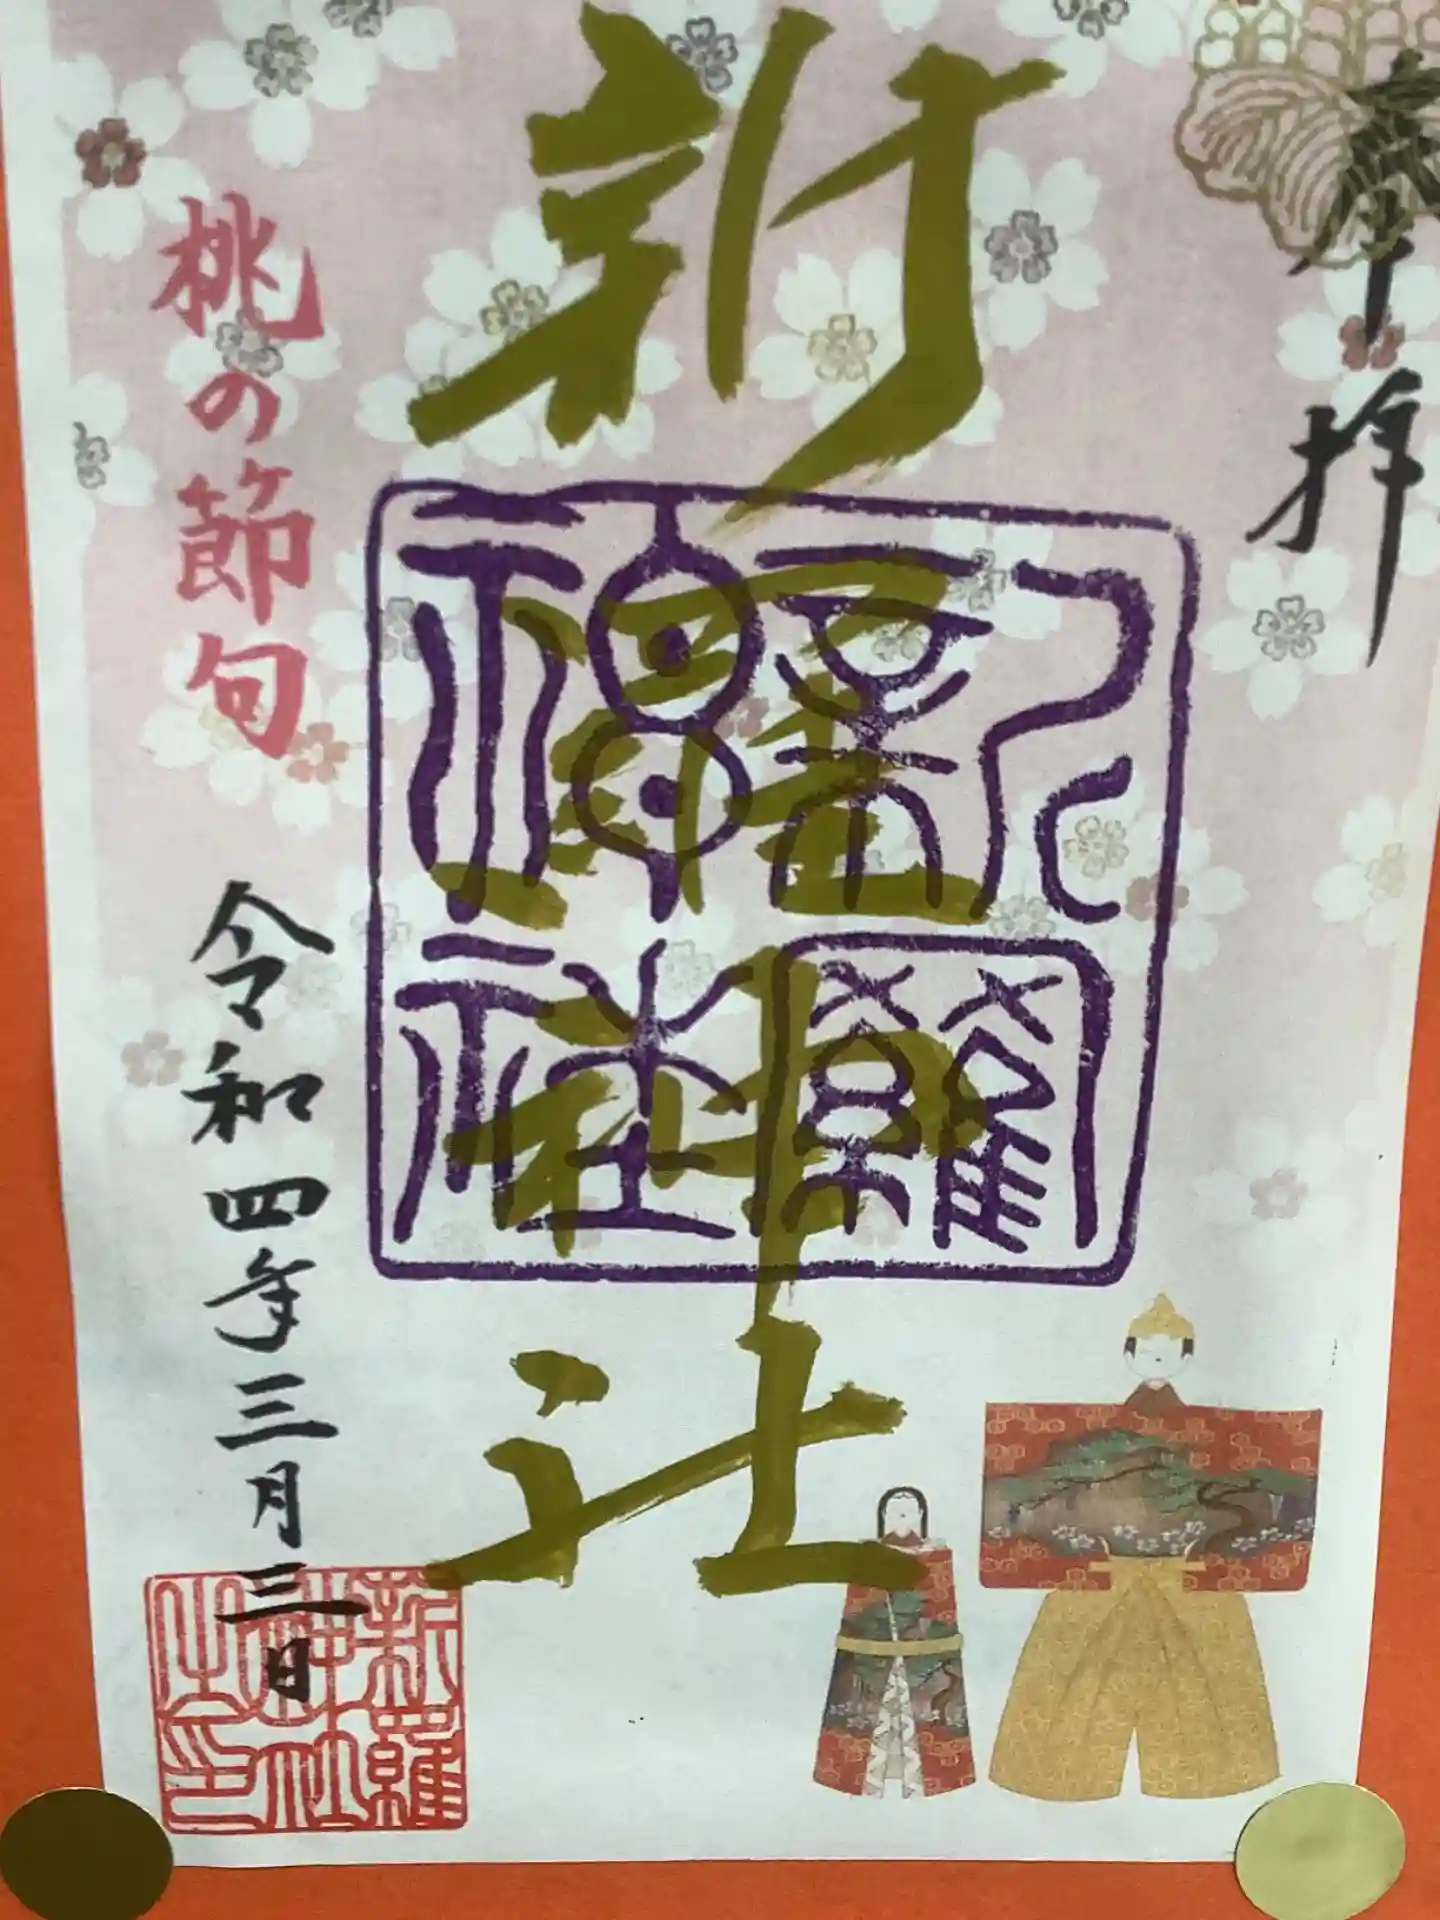 奉拝
新羅神社
新羅神社
桃の節句
令和四年三月三日
新羅神社之印